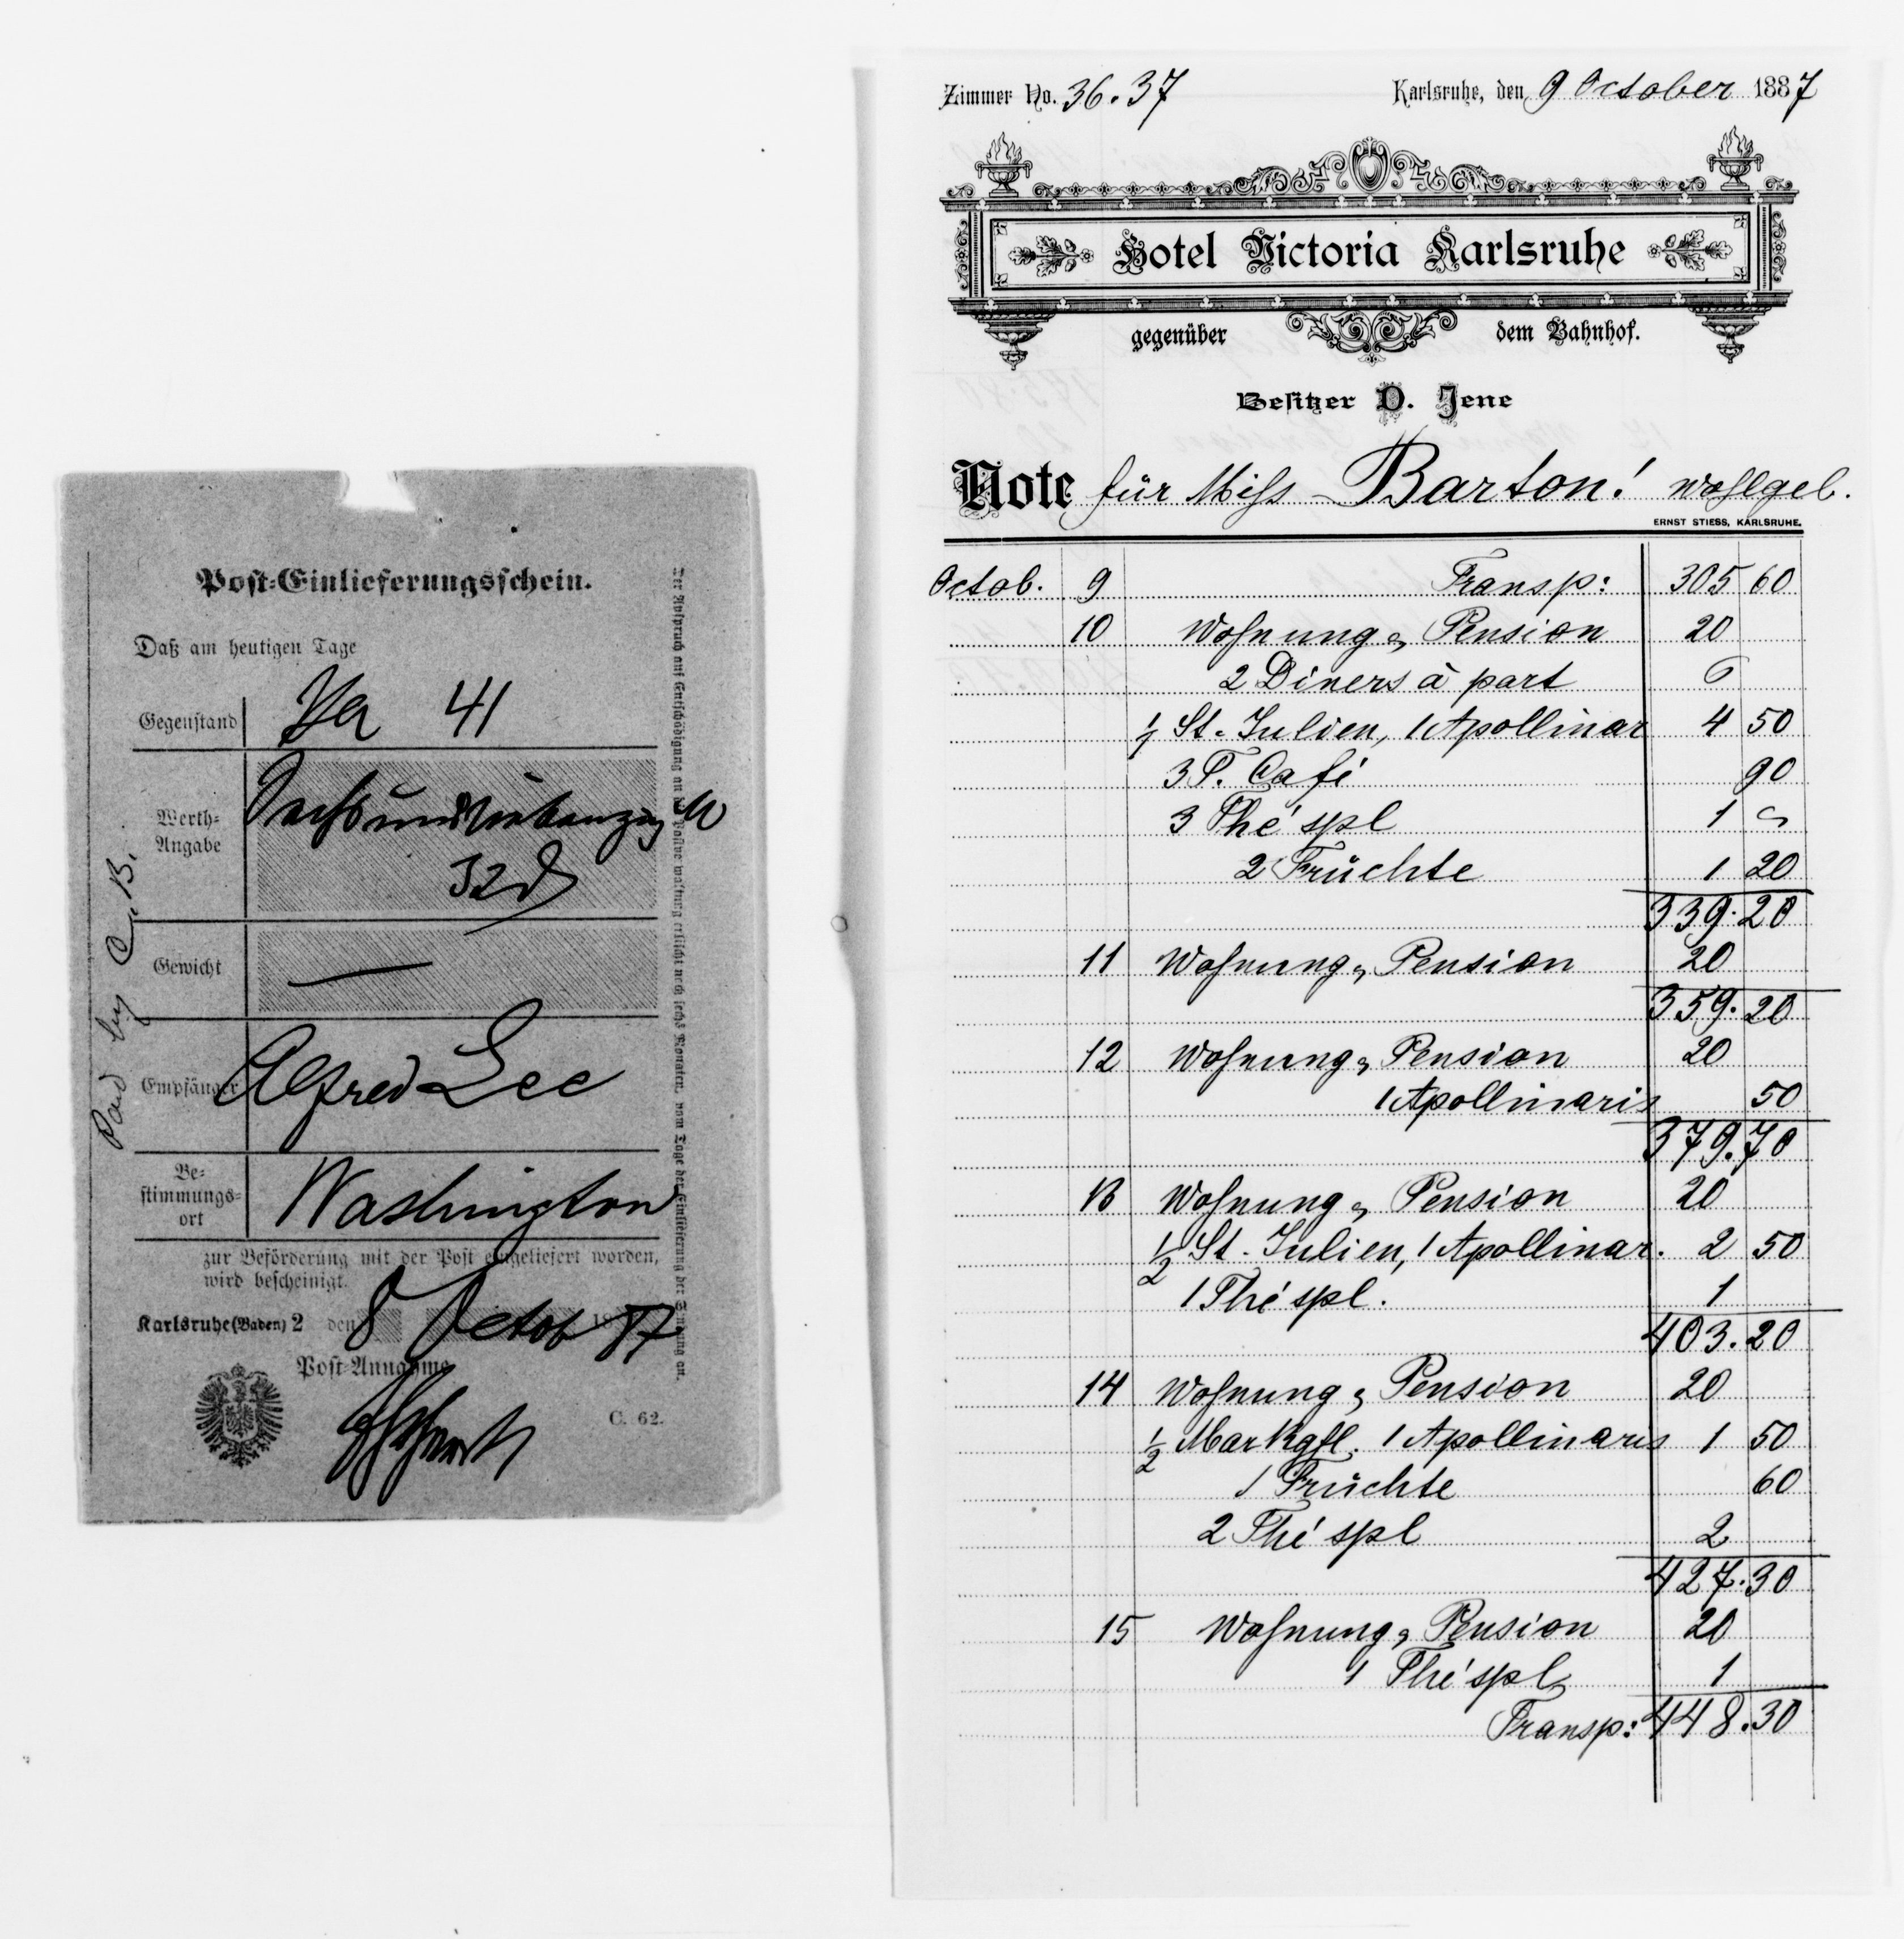 Post-Einlieferungsschein.
Daß am heutigen Tage
Gegenstand 41
Werth-
Angabe
32
Gewicht —
Empfänger Alfred Lee
Be-
stimmungs-
ort Washington
zur Beförderung mit der Post eingeliefert worden,
wird bescheinigt.
Karlsruhe (Baden) 2 den 8 Octob 1887
Post-Annahme
C. 62.
Paid by C. B.
Der Anspruch auf Entschädigung an die Postverwaltung erlischt nach sechs Monaten, vom Tage der Einlieferung der Sendung an.
Zimmer No. 36.37 Karlsruhe, den 9 October 1887
Hotel Victoria Karlsruhe
gegenüber dem Bahnhof.
Besitzer D. Jene
Note für Miſs Barton! wohlgel.
ERNST STIESS, KARLSRUHE.
Octob. 9 Transp: 305 60
10 Wohnung & Pension 20
2 Diners à part 6
1/1 St. Julien, 1 Apollinar 4 50
3 T. Café 90
3 Thé spl 1
2 Früchte 1 20
339.20
11 Wohnung & Pension 20
359.20
12 Wohnung & Pension 20
1 Apollinaris 50
379.70
13 Wohnung & Pension 20
1/2 St. Julien, 1 Apollinar. 2 50
1 Thé spl. 1
403.20
14 Wohnung & Pension 20
1/2 Markgfl. 1 Apollinaris 1 50
1 Früchte 60
2 Thé spl 2
427.30
15 Wohnung & Pension 20
1 Thé spl 1
Transp: 448.30